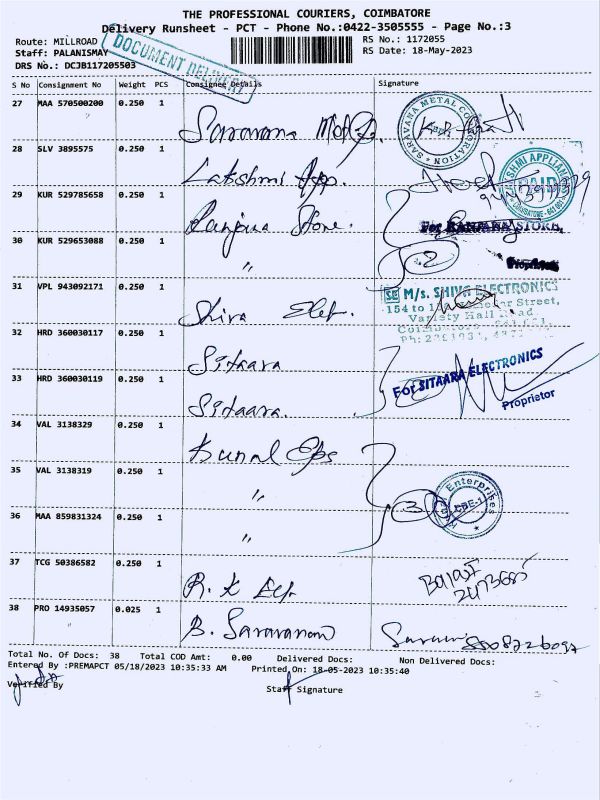 THE PROFESSIONAL COURIERS, COIMBATORE
Delivery Runsheet - PCT - Phone No.:0422-3505555 - Page No.:3
Route: MILLROAD
RS No.: 1172055
Staff: PALANISMAY
RS Date: 18-May-2023
DRS No.: DCJB117205503
DOCUMENT DELIVERY
S No Consignment No Weight PCS Consignee Details Signature
27 MAA 570500200 0.250 1 Saravana
SARAVANA METAL CORPORATION
28 SLV 3895575 0.250 1 Lakshmi App.
29 KUR 529785658 0.250 1 Ranjna Store.
For RANJANA STORE,
30 KUR 529653088 0.250 1 "
2
Proprietor
31 VPL 943092171 0.250 1 Shiva Elet.
SE M/s. SHIVA ELECTRONICS
Variety Hall Road
32 HRD 360030117 0.250 1 Sitaara
33 HRD 360030119 0.250 1 Sitaara.
For SITAARA ELECTRONICS
Proprietor
34 VAL 3138329 0.250 1 Kunal Eps
35 VAL 3138319 0.250 1 "
3
Enterprises
CBE-1
36 MAA 859831324 0.250 1 "
37 TCG 50386582 0.250 1 R. K
38 PRO 14935057 0.025 1 B. Saravanan
Total No. Of Docs: 38 Total COD Amt: 0.00 Delivered Docs: Non Delivered Docs:
Entered By :PREMAPCT 05/18/2023 10:35:33 AM Printed On: 18-05-2023 10:35:40
Verified By
Staff Signature